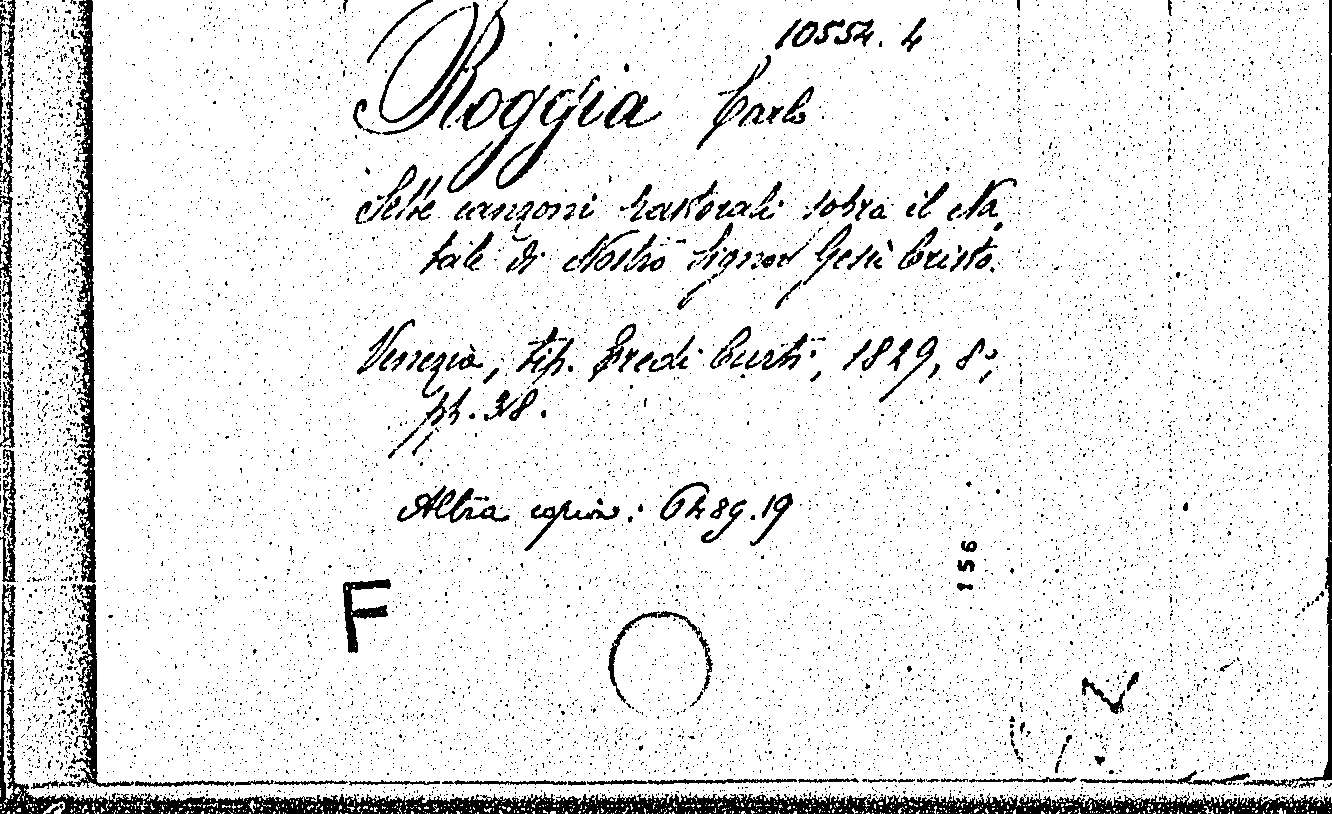 10554. 4
Roggia Carlo
Sette canzoni pastorali sopra il Na
tale di Nostro Signor Gesù Cristo.
Venezia, tip. Eredi Curti, 1829, 8°,
pp. 38.
Altra copia:
F
156